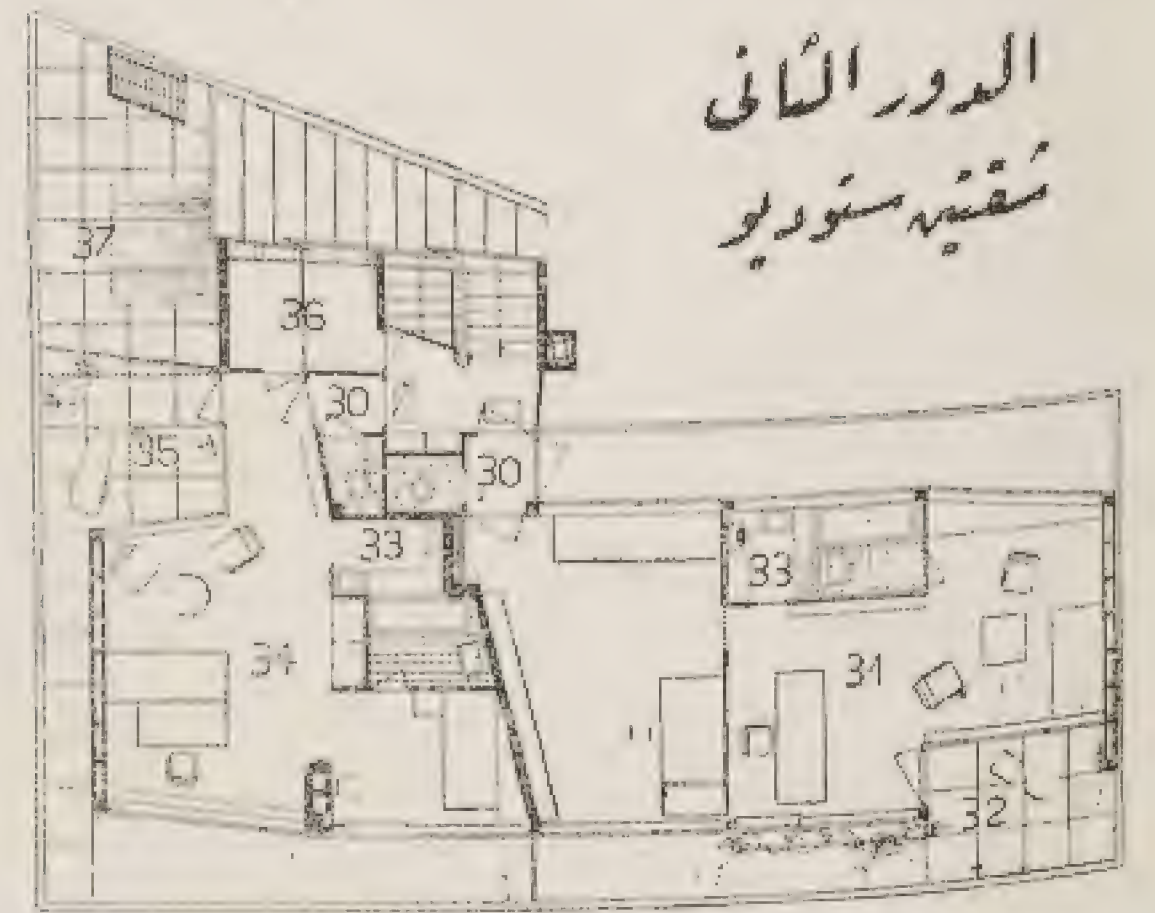 الدور الثانى
شقتين ستوديو
37
36
30
35
30
33
33
34
31
32